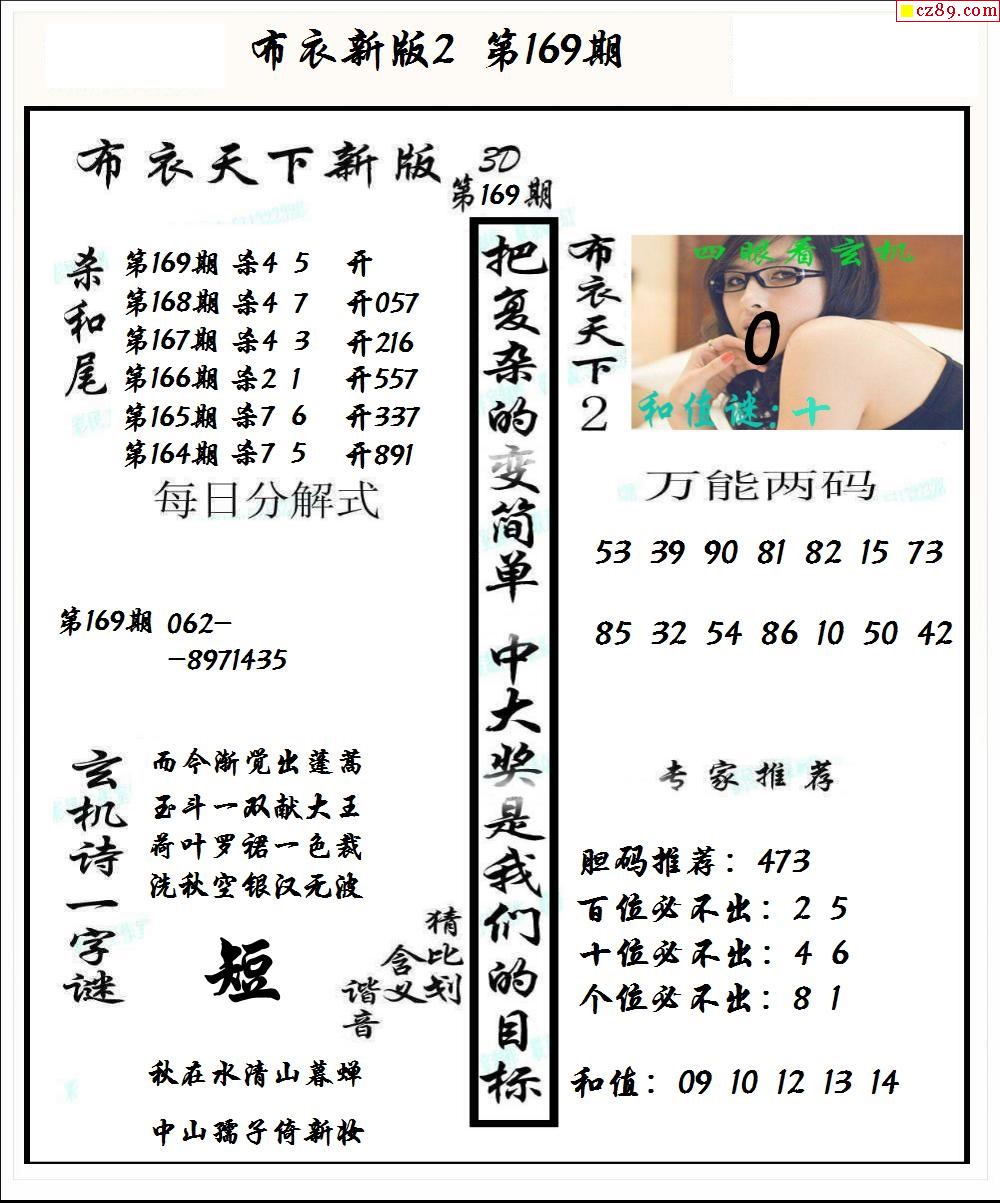 cz89.com
布衣新版2 第169期
布衣天下新版
3D
第169期
杀和尾
第169期 杀4 5 开
第168期 杀4 7 开057
第167期 杀4 3 开216
第166期 杀2 1 开557
第165期 杀7 6 开337
第164期 杀7 5 开891
每日分解式
第169期 062-
-8971435
玄机诗一字谜
而今渐觉出蓬蒿
玉斗一双献大王
荷叶罗裙一色裁
洗秋空银汉无波
短
猜比划
含义
谐音
秋在水清山暮蝉
中山孺子倚新妆
把复杂的变简单 中大奖是我们的目标
布衣天下2
四眼看玄机
0
和值谜:十
万能两码
53 39 90 81 82 15 73
85 32 54 86 10 50 42
专家推荐
胆码推荐：473
百位必不出：2 5
十位必不出：4 6
个位必不出：8 1
和值：09 10 12 13 14